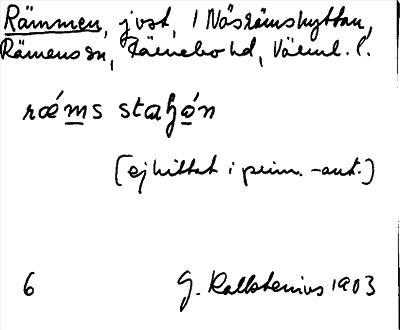 Rämmen, jvst, i Näsrämshyttan,
Rämens sn, Färnebo hd, Värml. l.
ræ´ms staʃó̱n
(ej hittat i prim. -aut.)
6 G. Kallstenius 1903